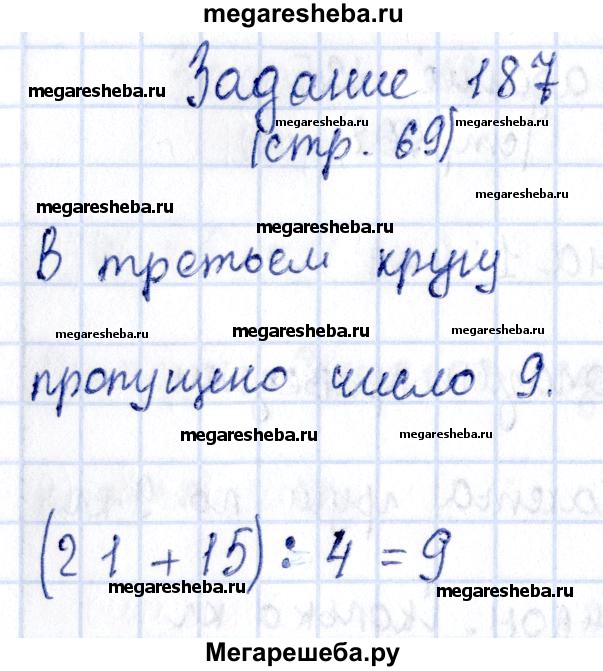 megaresheba.ru
Задание 187
megaresheba.ru
megaresheba.ru megaresheba.ru
(стр. 69)
megaresheba.ru
megaresheba.ru
megaresheba.ru
В третьем кругу
megaresheba.ru megaresheba.ru megaresheba.ru
пропущено число 9.
megaresheba.ru megaresheba.ru
(21 + 15) : 4 = 9
megaresheba.ru megaresheba.ru
Мегарешеба.ру